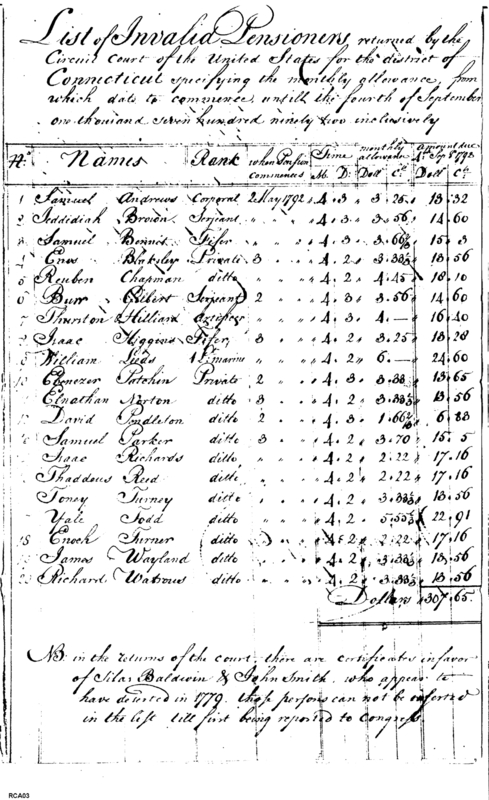 List of Invalid Pensioners returned by the
Circuit Court of the United States for the district of
Connecticut specifying the monthly allowance, from
which date to commence, untill the fourth of September
one thousand seven hundred ninety two inclusively
No. Names Rank when Pension commences Time M. D. monthly allowance Doll Cts amount due 4th Sep. 1792 Doll Cts
1 Samuel Andrews Corporal 2 May 1792 4 . 3 3 25 13 . 32
2 Jeddidiah Brown Serjeant 4 . 3 3 . 56 14 . 60
Samuel Bennit Fifer 4 . 3 3 . 66⅔ 15 . 3
4 Enos Blakesley Private 3 4 . 2 3 . 33⅓ 13 . 56
5 Reuben Chapman ditto 4 . 2 4 . 45 18 . 10
6 Burr Gilbert Serjeant 2 4 . 3 3 . 56 14 . 60
7 Thurston Hilliard 4 . 3 4 . — 16 . 40
Isaac Higgins Fifer 3 4 . 2 3 . 25 13 . 28
William Leeds 1 Lt. marine 4 . 2 6 . — 24 . 60
Ebenezer Patchin Private 2 4 . 3 3 . 33⅓ 13 . 65
Elnathan Norton ditto 3 4 . 2 3 . 33⅓ 13 . 56
David Pendleton ditto 2 4 . 3 1 . 66⅔ 6 . 83
Samuel Parker ditto 3 4 . 2 3 . 70 15 . 5
Isaac Richards ditto 4 . 2 2 . 22 17 . 16
Thaddeus Reed ditto 4 . 2 2 . 22 17 . 16
Toney Turney ditto 4 . 2 3 . 33⅓ 13 . 56
Yale Todd ditto 4 . 2 5 . 55⅓ 22 . 91
18 Enoch Turner ditto 4 . 2 2 . 22 17 . 16
James Wayland ditto 4 . 2 3 . 33⅓ 13 . 56
Richard Watrous ditto 4 . 2 3 . 33⅓ 13 . 56
Dollars 307 . 65
NB in the returns of the court, there are certificates in favor
of Silas Baldwin & John Smith who appear to
have deserted in 1779. those persons can not be inserted
in the list till first being reported to Congress
RCA03